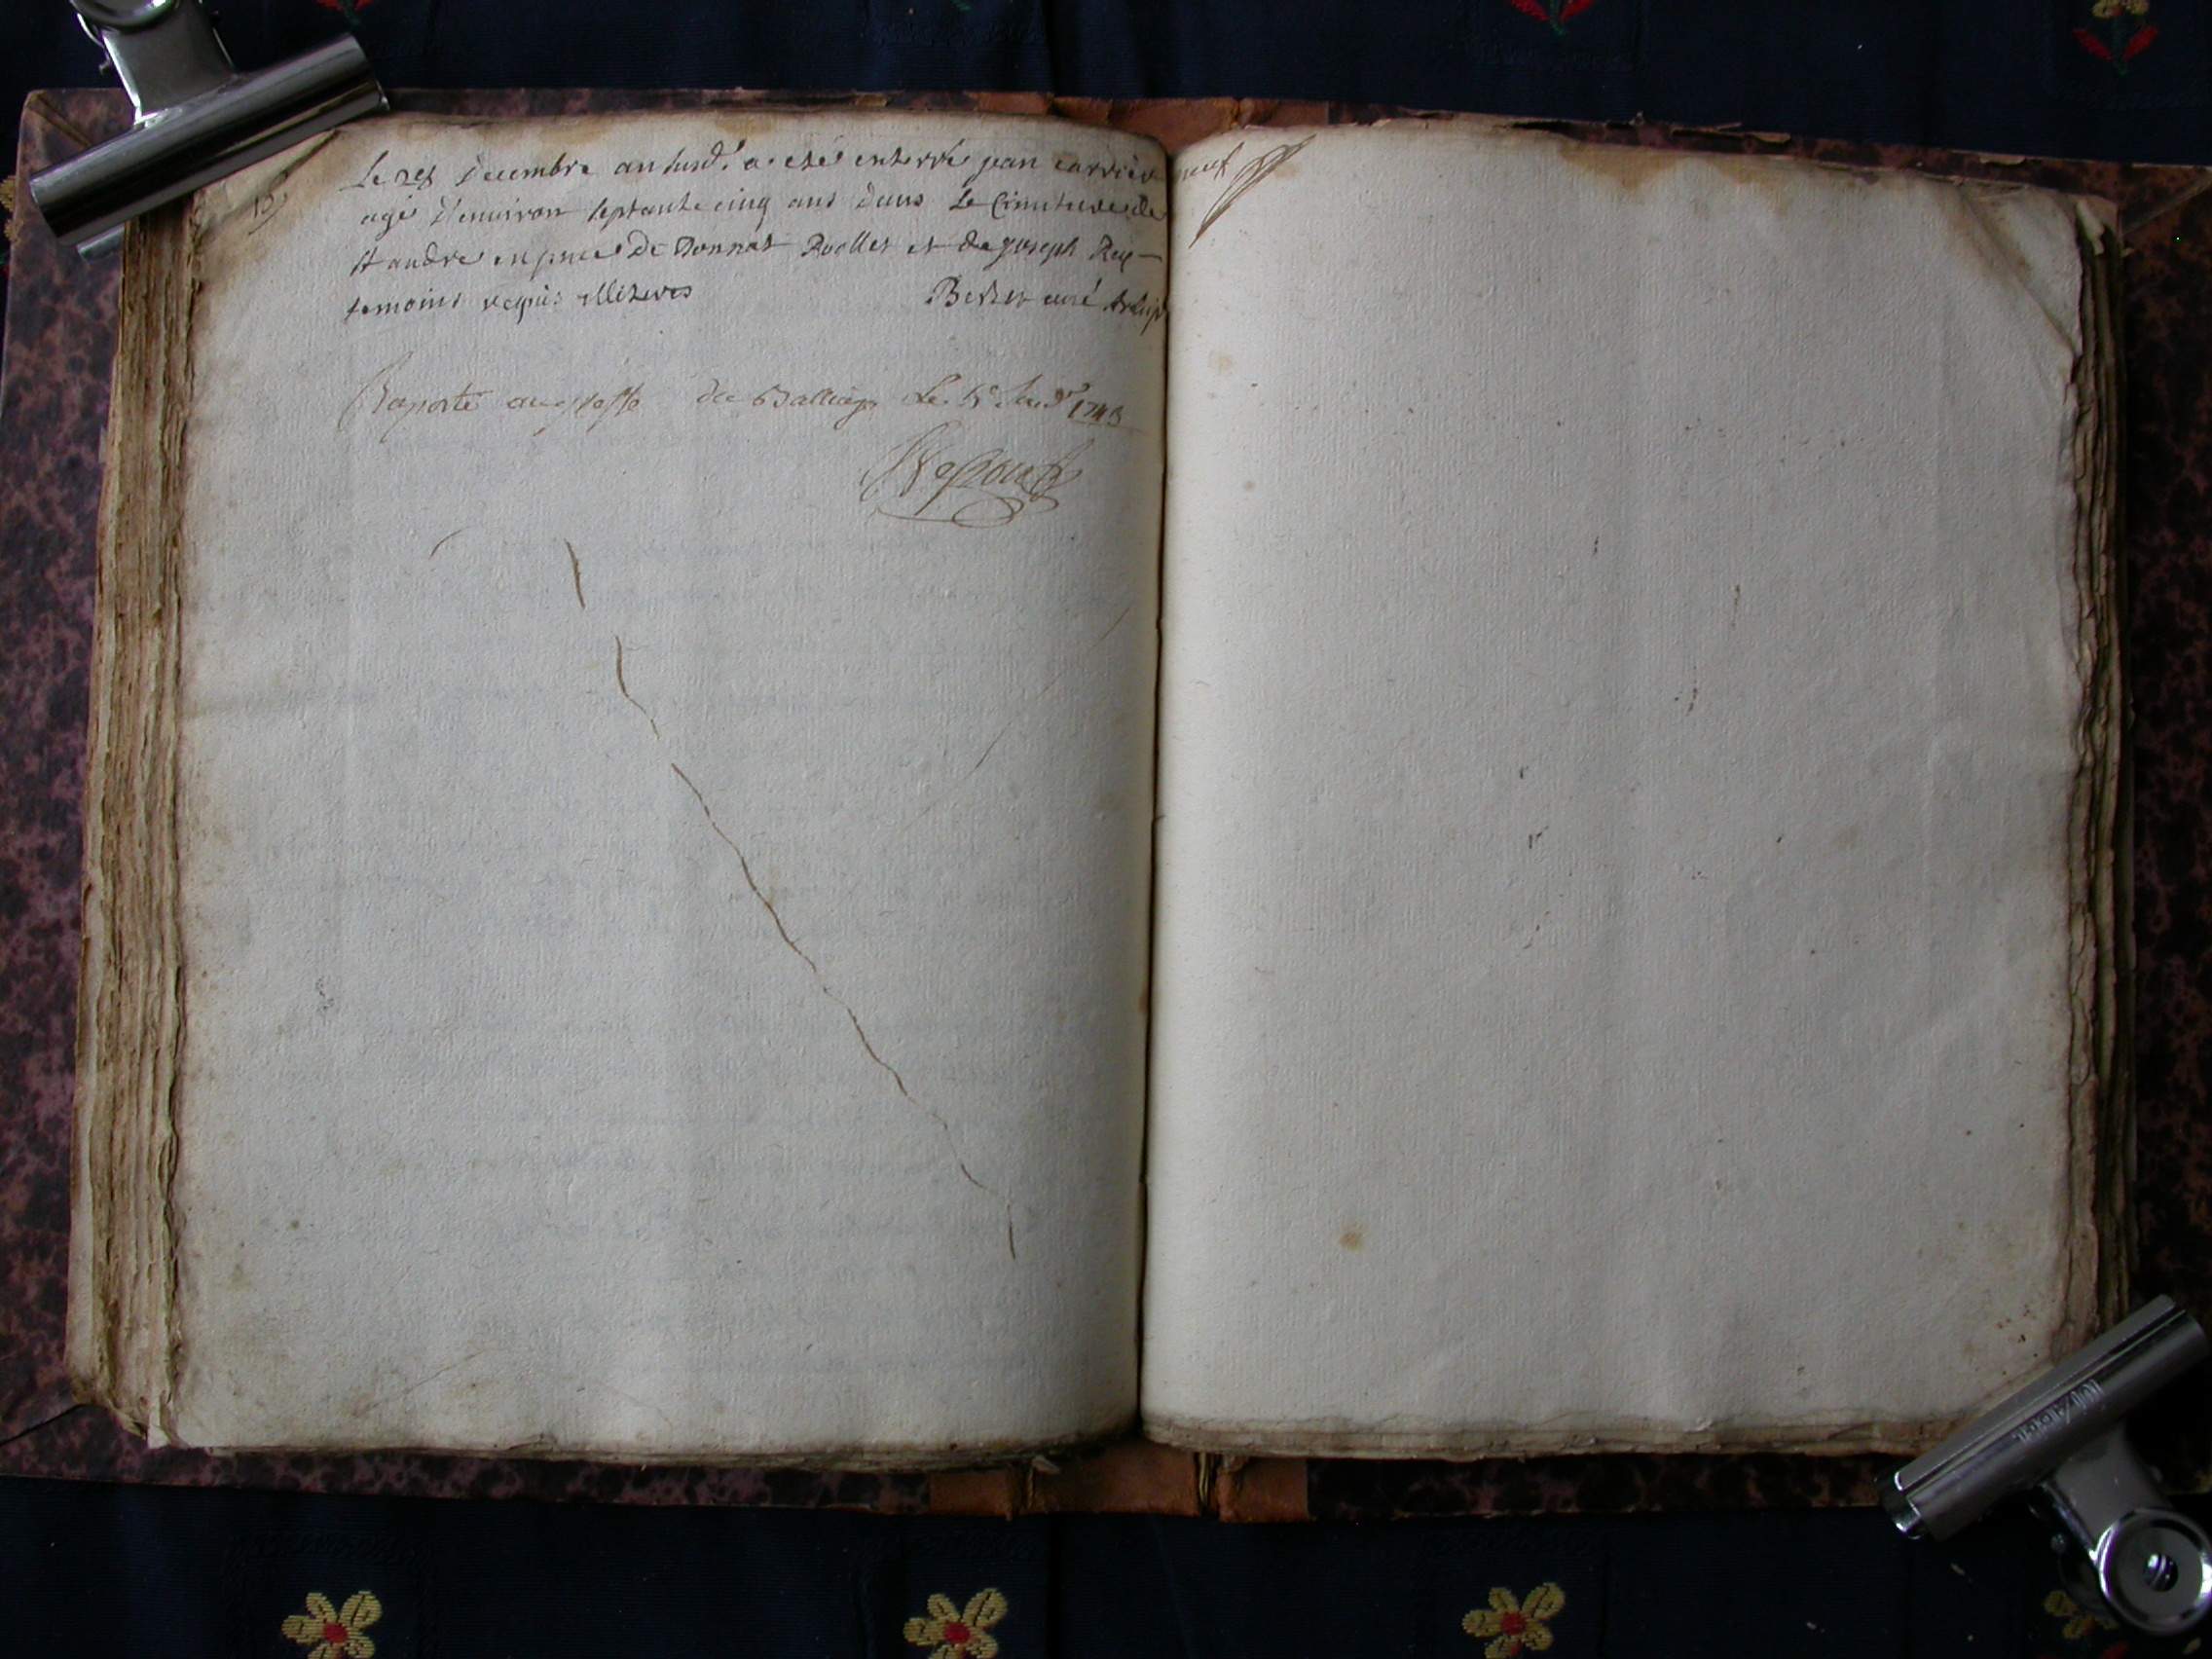 Le 28 decembre an susd.t a eté enterré jean carriere
agé d'environ septante cinq ans dans le Cimitiere de
st andré en pnce de Donnat Roclles et de joseph Rey
temoins requis illiteres Berber curé
Raporté au greffe du Balliage Le 5e Janvr 1743
neuf